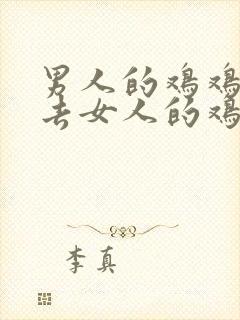 男人的鸡鸡
去女人的鸡
李真